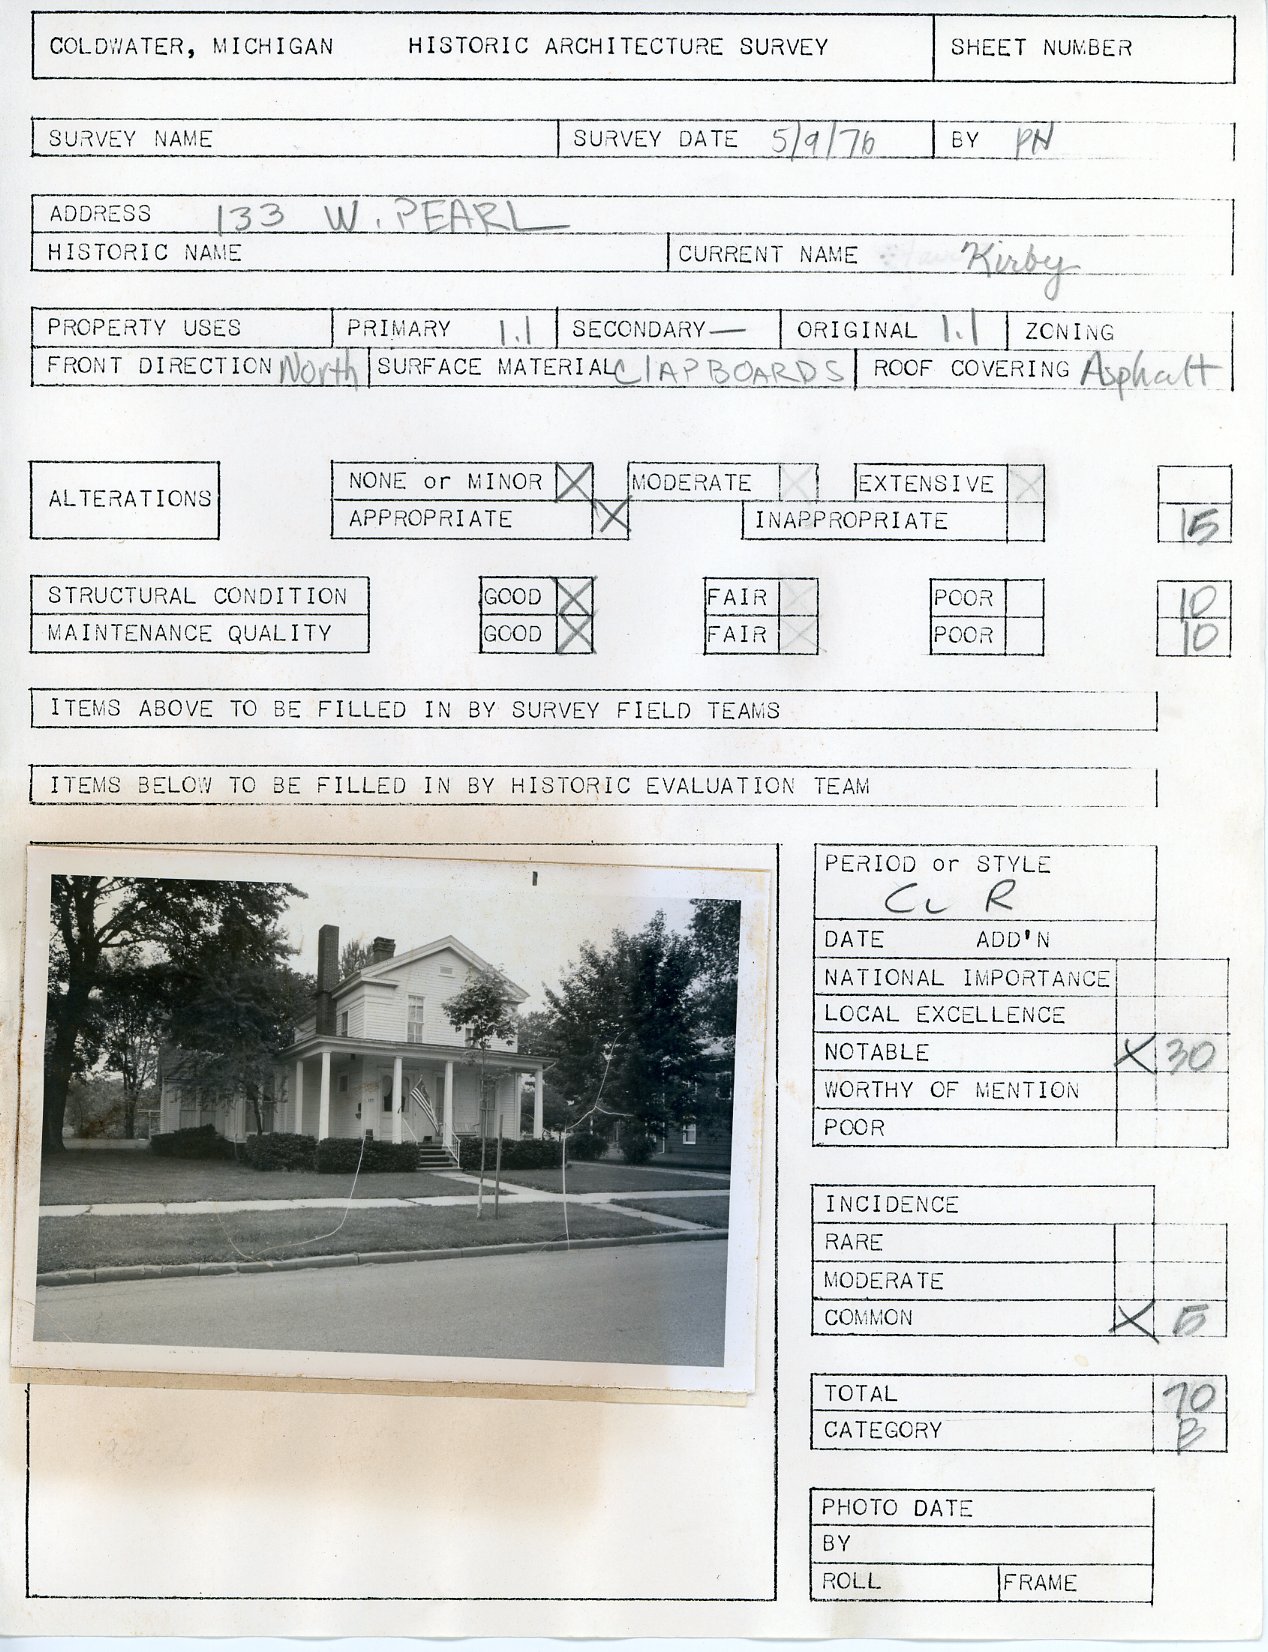 COLDWATER, MICHIGAN HISTORIC ARCHITECTURE SURVEY SHEET NUMBER
SURVEY NAME SURVEY DATE 5/9/76 BY PH
ADDRESS 133 W. PEARL
HISTORIC NAME CURRENT NAME Kirby
PROPERTY USES PRIMARY 1.1 SECONDARY — ORIGINAL 1.1 ZONING
FRONT DIRECTION North SURFACE MATERIAL ClAPBOARDS ROOF COVERING Asphalt
ALTERATIONS NONE or MINOR X MODERATE EXTENSIVE
APPROPRIATE X INAPPROPRIATE 15
STRUCTURAL CONDITION GOOD X FAIR POOR 10
MAINTENANCE QUALITY GOOD X FAIR POOR 10
ITEMS ABOVE TO BE FILLED IN BY SURVEY FIELD TEAMS
ITEMS BELOW TO BE FILLED IN BY HISTORIC EVALUATION TEAM
PERIOD or STYLE
CL R
DATE ADD'N
NATIONAL IMPORTANCE
LOCAL EXCELLENCE
NOTABLE X 30
WORTHY OF MENTION
POOR
INCIDENCE
RARE
MODERATE
COMMON X 5
TOTAL 70
CATEGORY B
PHOTO DATE
BY
ROLL FRAME